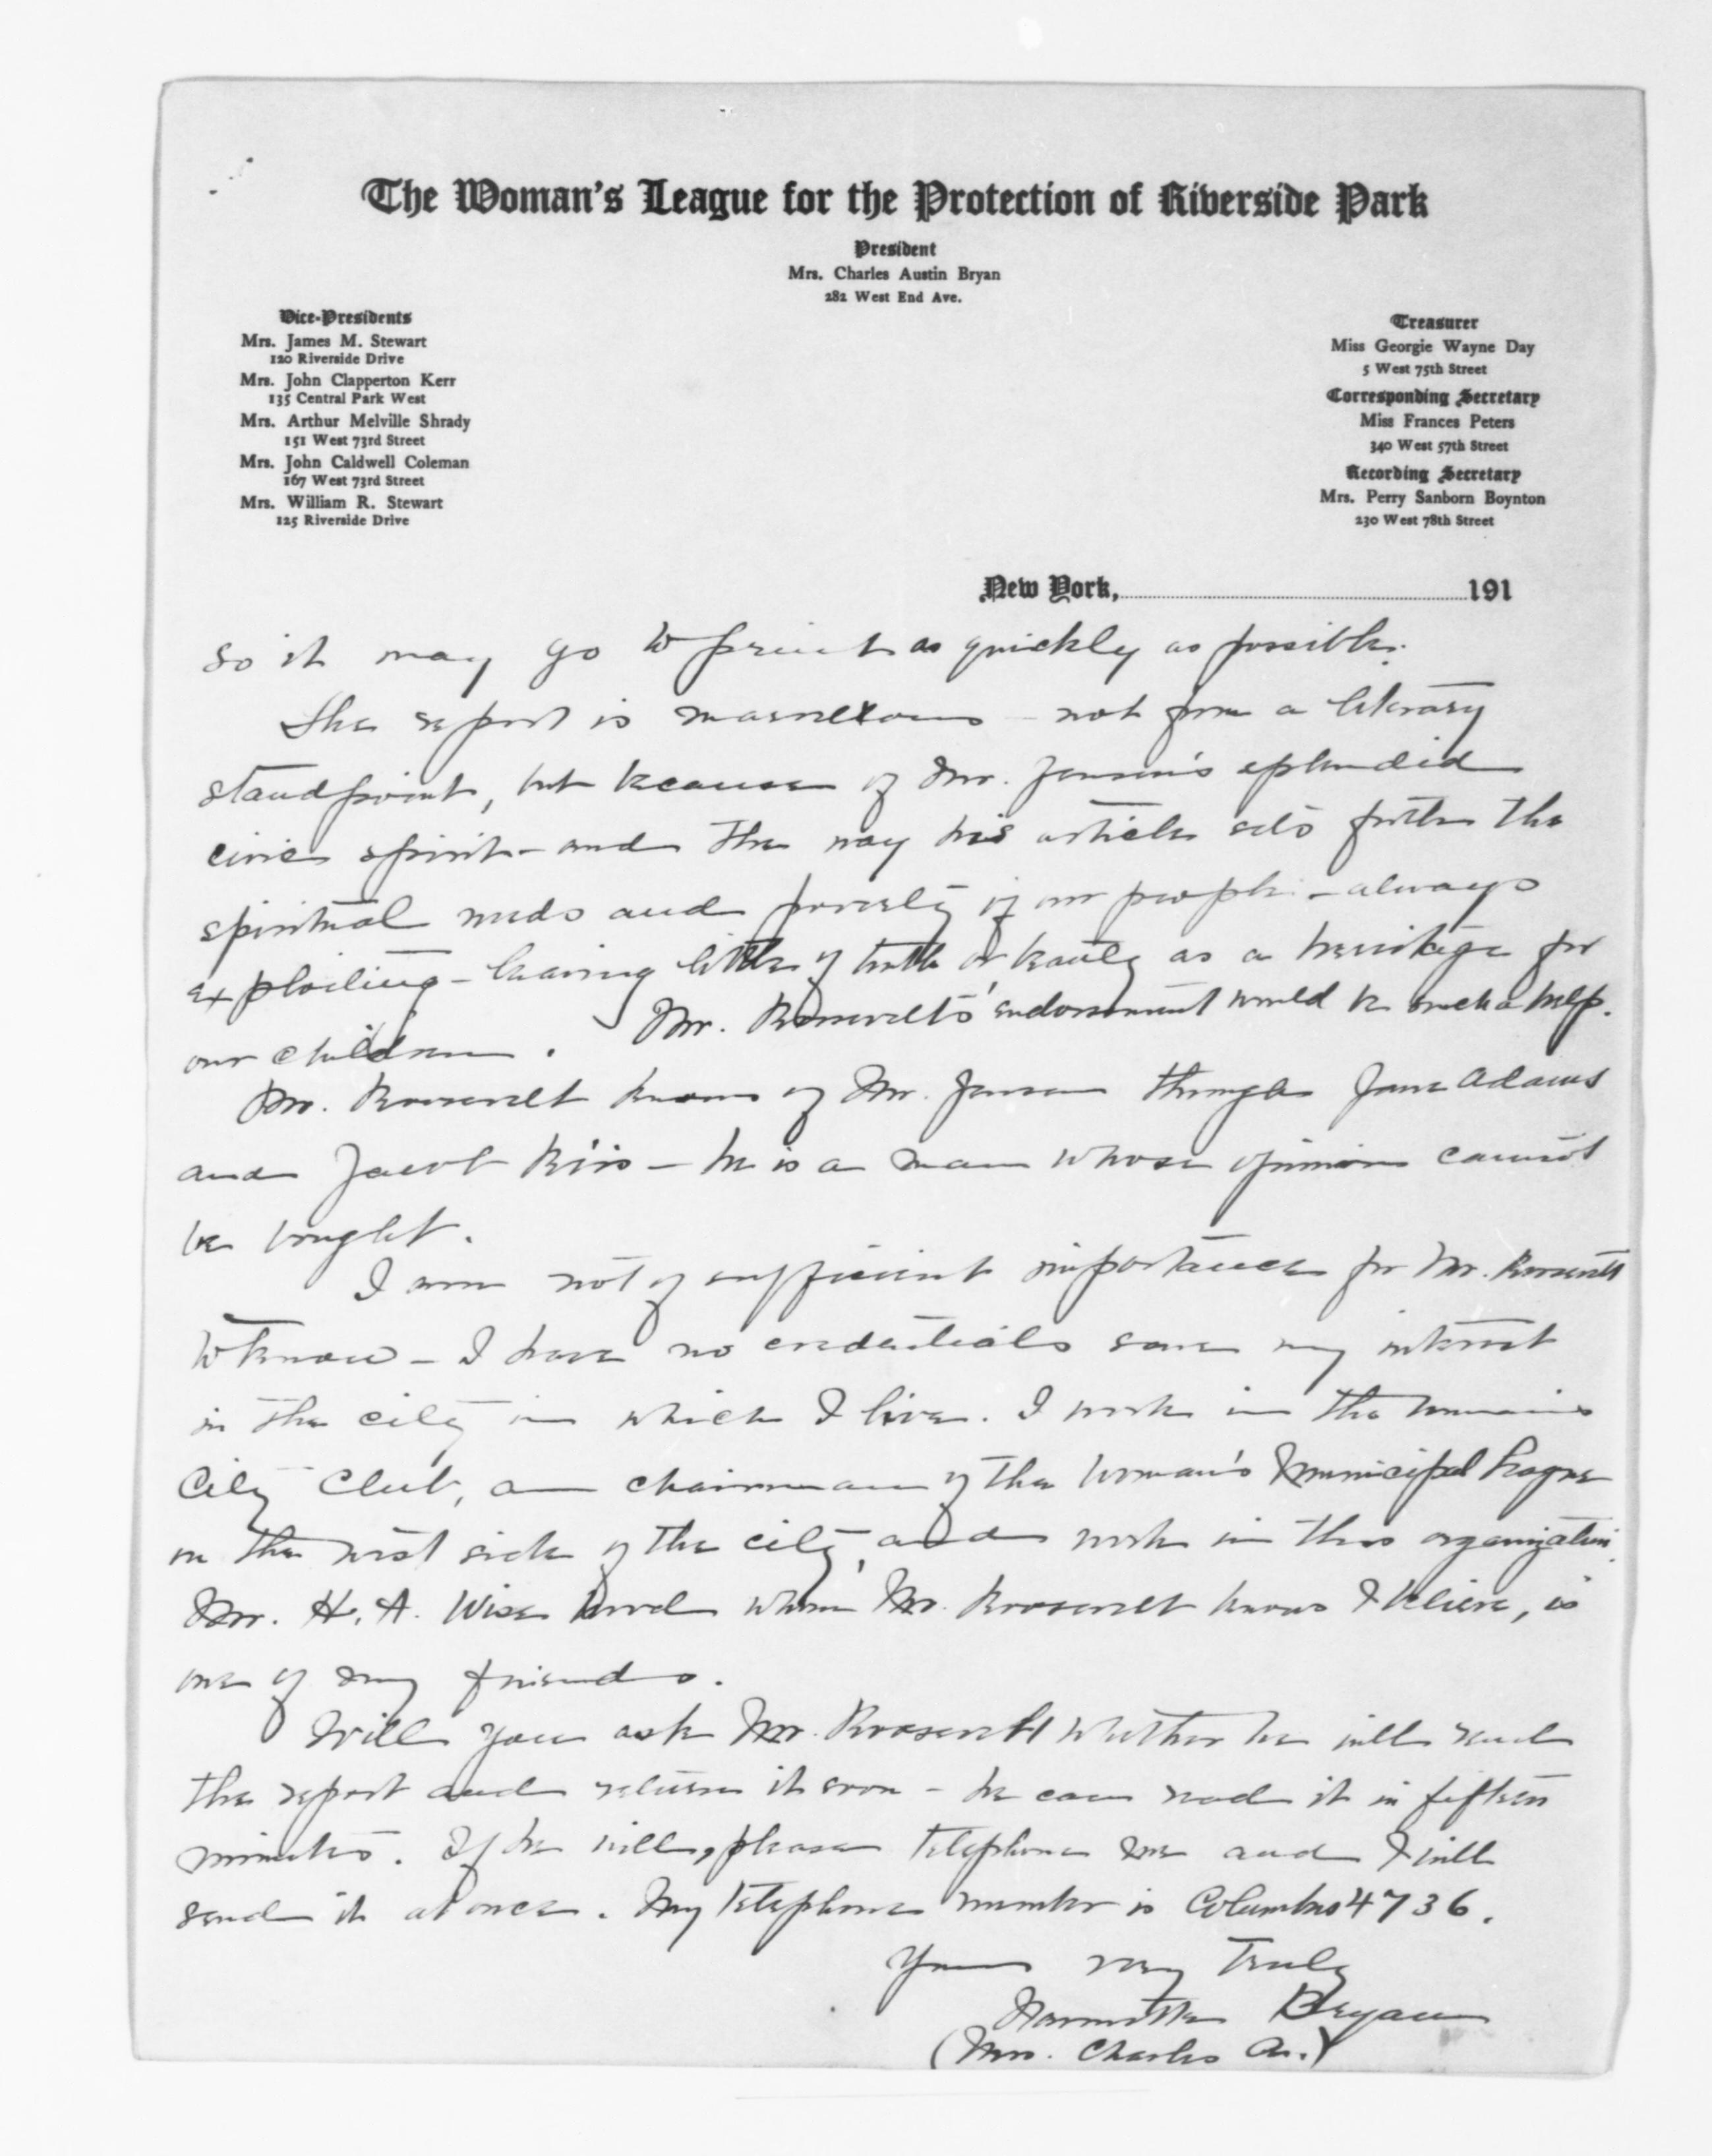 The Woman's League for the Protection of Riverside Park
President
Mrs. Charles Austin Bryan
282 West End Ave.
Vice-Presidents
Mrs. James M. Stewart
120 Riverside Drive
Mrs. John Clapperton Kerr
135 Central Park West
Mrs. Arthur Melville Shrady
151 West 73rd Street
Mrs. John Caldwell Coleman
167 West 73rd Street
Mrs. William R. Stewart
125 Riverside Drive
Treasurer
Miss Georgie Wayne Day
5 West 75th Street
Corresponding Secretary
Miss Frances Peters
340 West 57th Street
Recording Secretary
Mrs. Perry Sanborn Boynton
230 West 78th Street
New York, 191
so it may go to print as quickly as possible.
The report is marvelous – not from a literary
standpoint, but because of Mr. Jensen's splendid
civic spirit – and the way his article sets forth the
spiritual needs and poverty of our people – always
exploiting – leaving little of truth or beauty as a heritage for
our children. Mr. Roosevelt's endorsement would be such a help.
Mr. Roosevelt knows of Mr. Jensen through Jane Adams
and Jacob Riis – he is a man whose opinion cannot
be bought.
I am not of sufficient importance for Mr. Roosevelt
to know – I have no credentials save my interest
in the city in which I live. I work in the Woman's
City Club, am chairman of the Woman's Municipal League
on the west side of the city, and work in this organization.
Mr. H. A. Wise Wood whom Mr. Roosevelt knows I believe, is
one of my friends.
Will you ask Mr. Roosevelt whether he will read
the report and return it soon – he can read it in fifteen
minutes. If he will, please telephone me and I will
send it at once. My telephone number is Columbus 4736.
Yours very truly
Bryan
(Mrs. Charles A.)